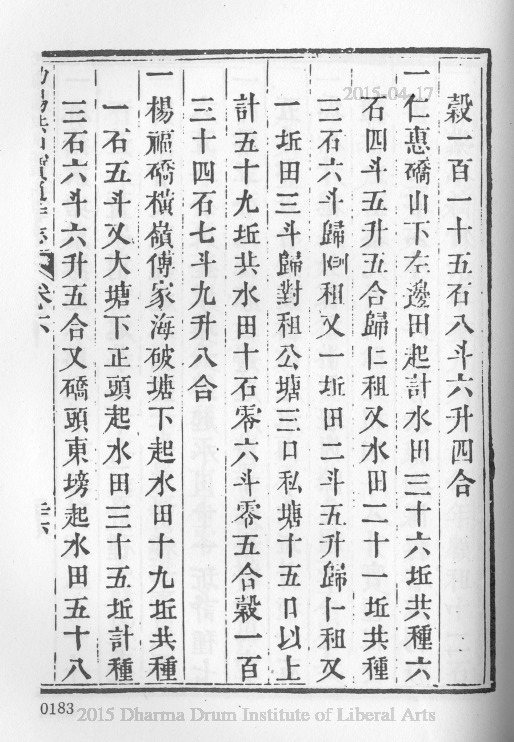 穀一百一十五石八斗六升四合
一仁惠礄山下左邊田起計水田三十六坵共種六
石四斗五升五合歸仁租又水田二十一坵共種
三石六斗歸 租又一坵田二斗五升歸 租又
一坵田三斗歸對租公塘三口私塘十五口以上
計五十九坵共水田十石零六斗零五合穀一百
三十四石七斗九升八合
一楊福礄橫嶺傅家海破塘下起水田十九坵共種
一石五斗又大塘下正頭起水田三十五坵計種
三石六斗六升五合又礄頭東塝起水田五十八
卷六
三六
0183
2015-04-17
2015 Dharma Drum Institute of Liberal Arts